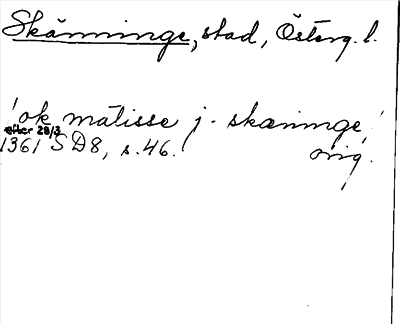 Skänninge, stad, Österg. l.
'ok matisse j. skæninge'
efter 28/3
1361 SD8, s. 46. orig.